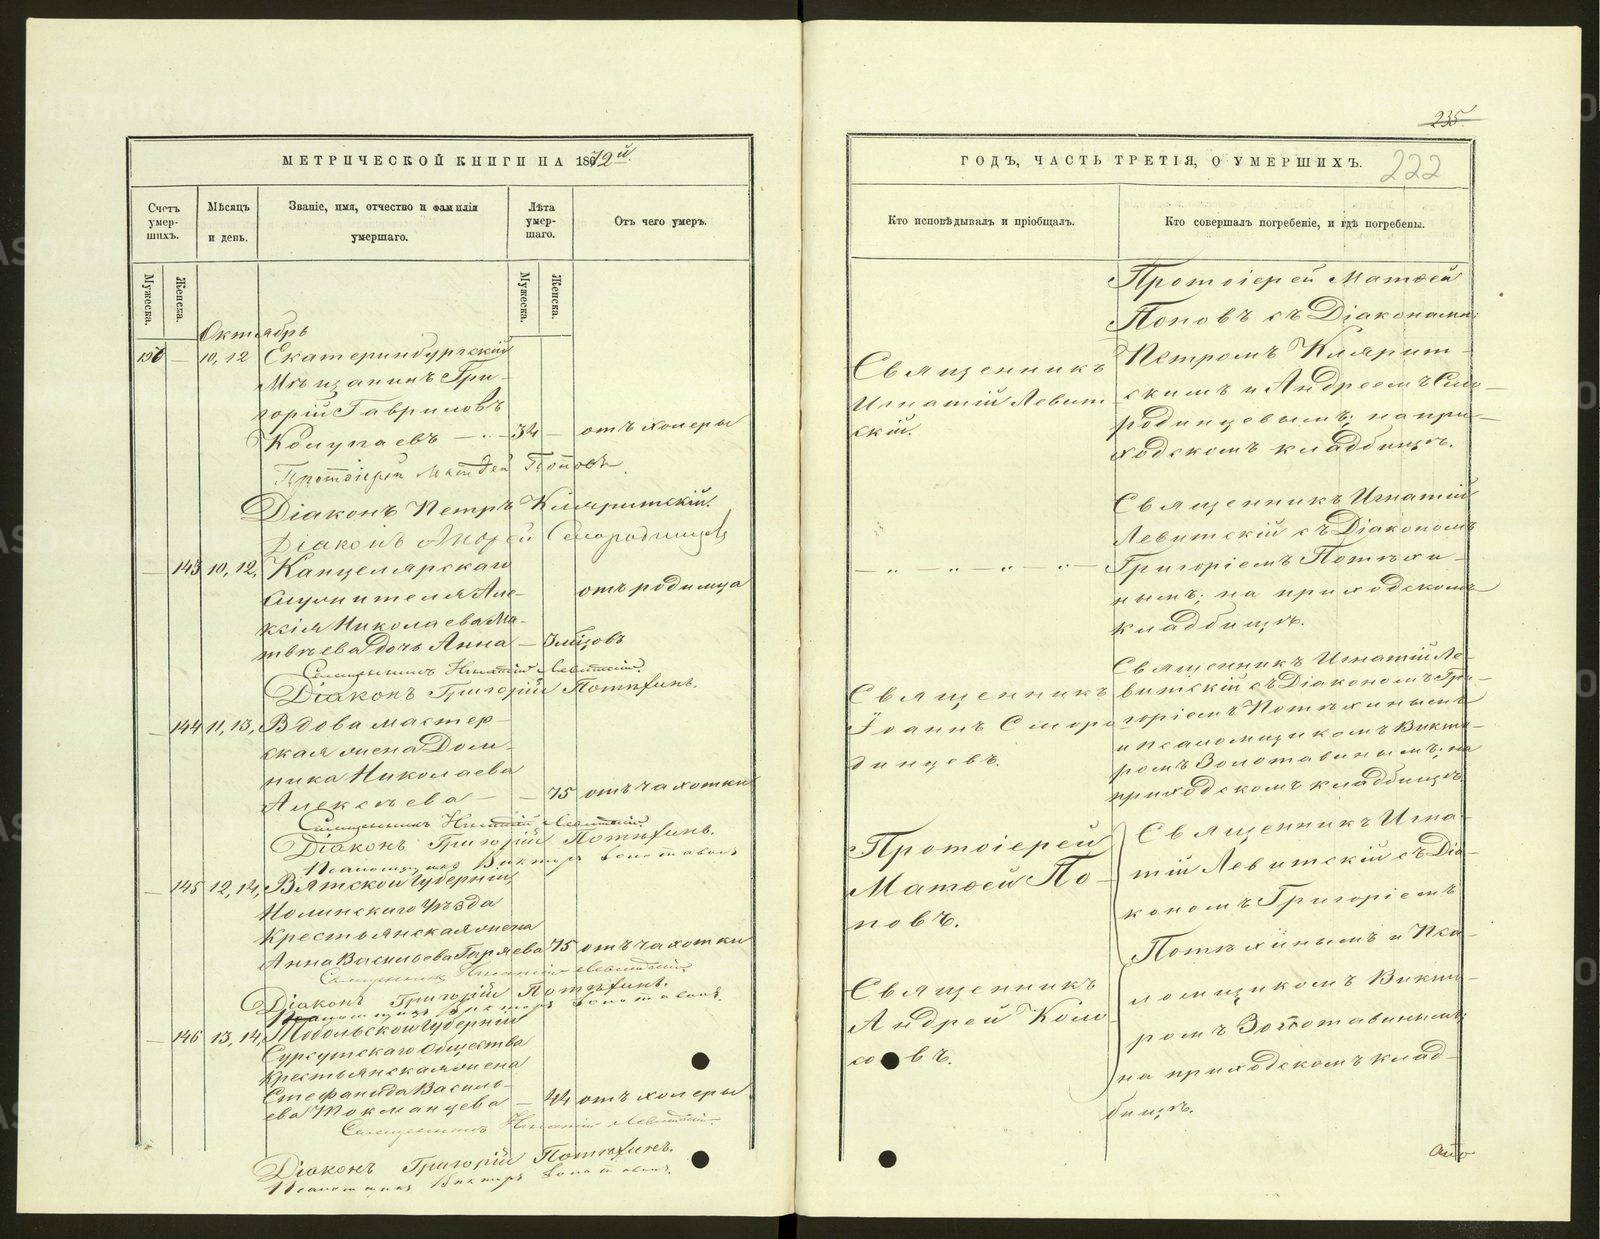 235.
МЕТРИЧЕСКОЙ КНИГИ НА 1872й.
Счетъ умер-шихъ.
Мѣсяцъ и день.
Званіе, имя, отчество и фамилія умершаго.
Лѣта умер-шаго.
Отъ чего умеръ.
Мужеска.
Женска.
Мужеска.
Женска.
Октябрь
— 10, 12 Екатеринбургскій
Мѣщанинъ Гри-
горій Гавриловъ
Колупаевъ — 34 — отъ холеры
Протоіерей Матѳей Поповъ.
Діаконъ Петръ Кляритскій.
Діаконъ Андрей Смородинцевъ
— 143 10, 12, Канцелярскаго
Служителя Але-
отъ родимца
ксія Николаева Ма-
твѣева дочь Анна —
Священникъ Игнатій Левитскій.
Діаконъ Григорій Потѣхинъ.
— 144 11, 13, Вдова мастер-
ская жена Дом-
ника Николаева
Алексѣева — — 75 отъ чахотки
Священникъ Игнатій Левитскій.
Діаконъ Григорій Потѣхинъ.
Псаломщикъ Викторъ Золотавинъ
— 145 12, 14, Вятской Губерніи,
Нолинскаго Уѣзда
Крестьянская жена
Анна Васильева Гаряева 75 отъ чахотки
Священникъ Игнатій Левитскій.
Діаконъ Григорій Потѣхинъ.
Псаломщикъ Викторъ Золотавинъ.
— 146 13, 14, Тобольской Губерніи
Сургутскаго Общества
Крестьянская жена
Стефанида Василь-
ева Токманцева — 44 отъ холеры
Священникъ Игнатій Левитскій.
Діаконъ Григорій Потѣхинъ.
Псаломщикъ Викторъ Золотавинъ.
ГОДЪ, ЧАСТЬ ТРЕТІЯ, О УМЕРШИХЪ.
222
Кто исповѣдывалъ и пріобщалъ.
Кто совершалъ погребеніе, и гдѣ погребены.
Протоіерей Матѳей
Поповъ съ Діаконами:
Священникъ
Петромъ Клярит-
Игнатій Левит-
скимъ и Андреемъ Смо-
скій.
родинцевымъ; на при-
ходскомъ кладбищѣ.
Священникъ Игнатій
Левитскій съ Діакономъ
— „ — „ — „ —
Григоріемъ Потѣхи-
нымъ; на приходскомъ
кладбищѣ.
Священникъ Игнатій Ле-
Священникъ
витскій съ Діакономъ Гри-
Іоаннъ Сморо-
горіемъ Потѣхинымъ
и псаломщикомъ Викто-
динцевъ.
ромъ Золотавинымъ; на
приходскомъ кладбищѣ.
Священникъ Игна-
Протоіерей
тій Левитскій съ Діа-
Матѳей По-
кономъ Григоріемъ
повъ.
Потѣхинымъ и Пса-
Священникъ
ломщикомъ Викто-
Андрей Коло-
ромъ Золотавинымъ;
совъ.
на приходскомъ клад-
бищѣ.